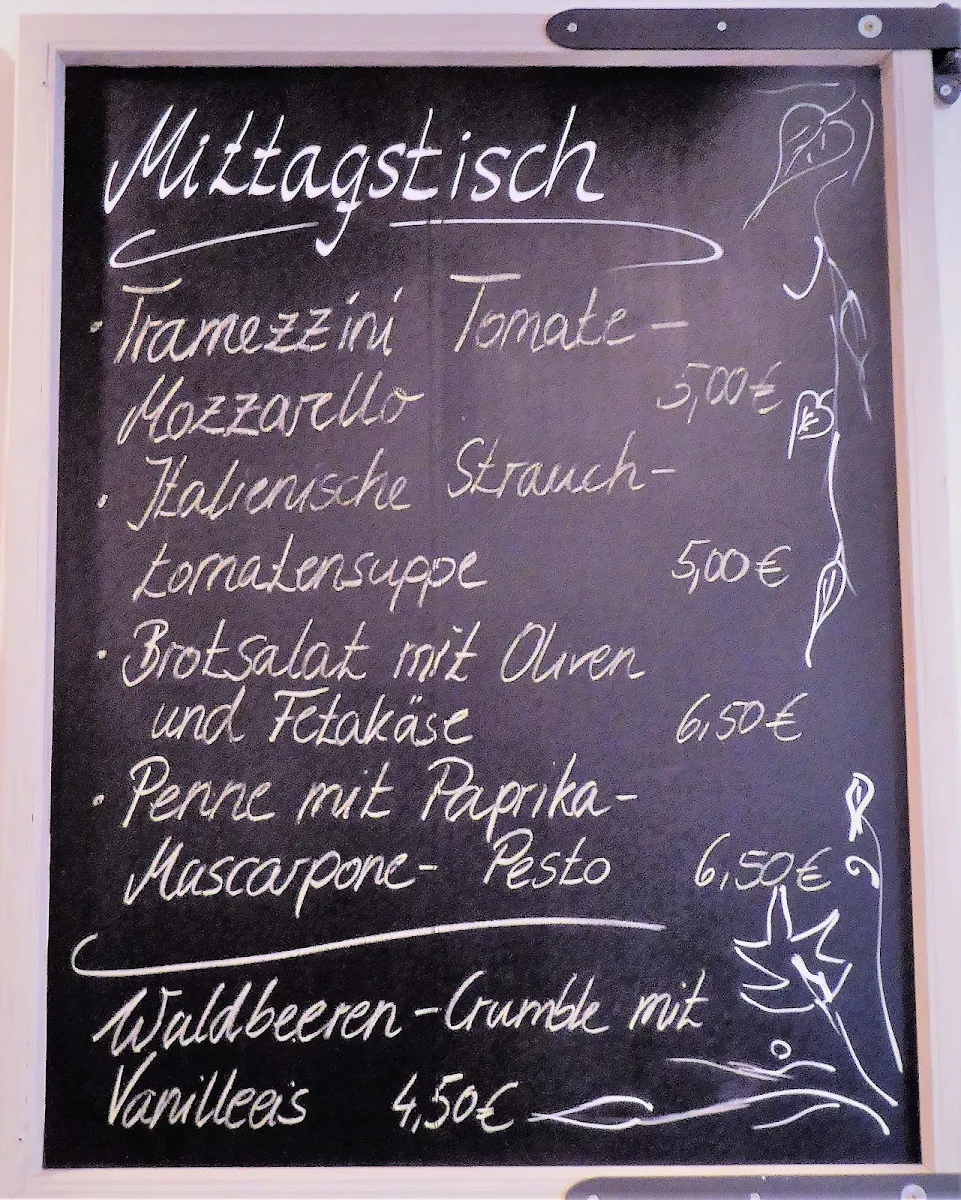 Mittagstisch
· Tramezzini Tomate-
Mozzarella 5,00€
· Italienische Strauch-
tomatensuppe 5,00€
· Brotsalat mit Oliven
und Fetakäse 6,50€
· Penne mit Paprika-
Mascarpone- Pesto 6,50€
Waldbeeren-Crumble mit
Vanilleeis 4,50€